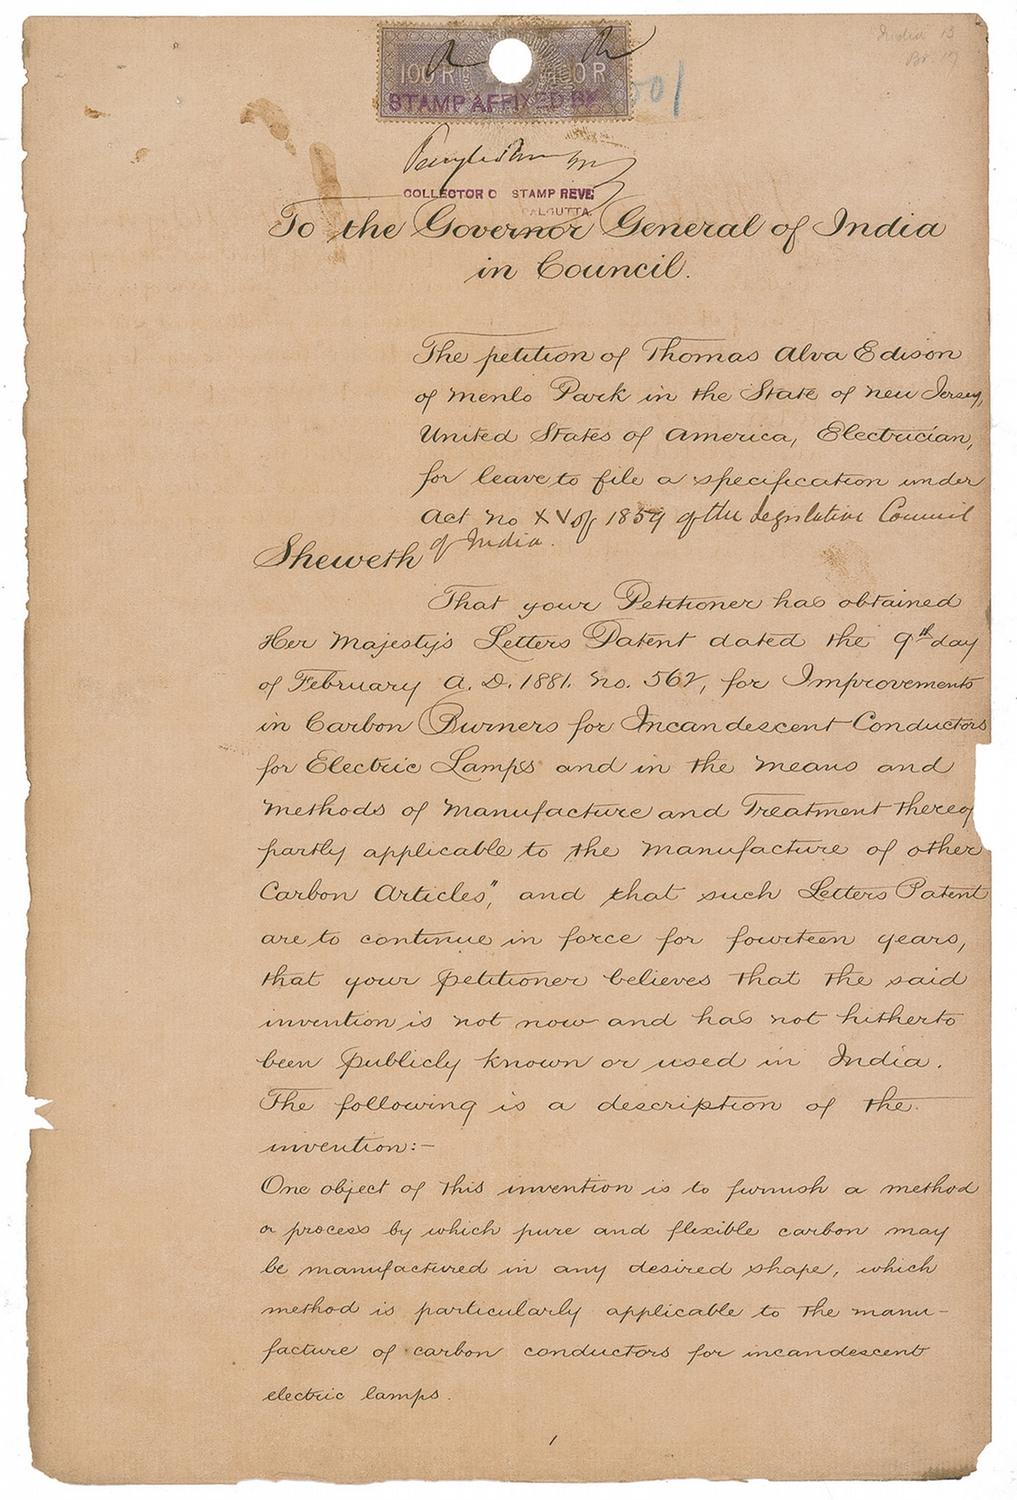 100 R 100 R
STAMP AFFIXED BY
COLLECTOR O STAMP REVE
CALCUTTA.
India 13
Br. 17
To the Governor General of India
in Council.
The petition of Thomas Alva Edison
of Menlo Park in the State of New Jersey,
United States of America, Electrician,
for leave to file a specification under
Act No XV of 1859 of the Legislative Council
of India.
Sheweth
That your Petitioner has obtained
Her Majesty's Letters Patent dated the 9th day
of February A. D. 1881. No. 562, for Improvements
in Carbon Burners for Incandescent Conductors
for Electric Lamps and in the means and
methods of Manufacture and Treatment thereof
partly applicable to the manufacture of other
Carbon Articles", and that such Letters Patent
are to continue in force for fourteen years,
that your petitioner believes that the said
invention is not now and has not hitherto
been publicly known or used in India.
The following is a description of the
invention:-
One object of this invention is to furnish a method
or process by which pure and flexible carbon may
be manufactured in any desired shape, which
method is particularly applicable to the manu-
facture of carbon conductors for incandescent
electric lamps.
1